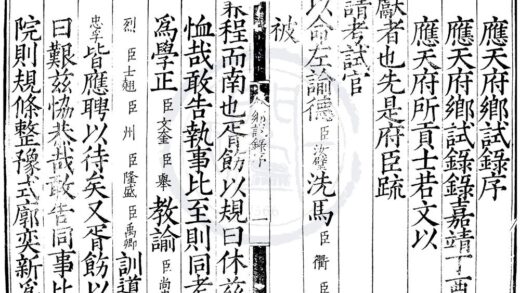 應天府鄉試錄序
應天府鄉試錄錄嘉靖丁酉
應天府所貢士若文以
獻者也先是府臣疏
請考試官
以命左諭德臣汝璧洗馬臣衢臣
被
鄉試錄序 一
程而南也胥飭以規曰休茲
恤哉敢告執事比至則同考
為學正臣文奎臣舉教諭臣尚
烈臣士翹臣州臣隆盛臣禹卿訓導
忠孚皆應聘以待矣又胥飭以
曰艱茲恊恭哉敢告同事比
院則規條整豫式廓奕新為